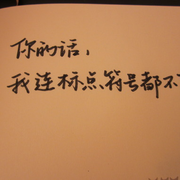 你的话，
我连标点符号都不